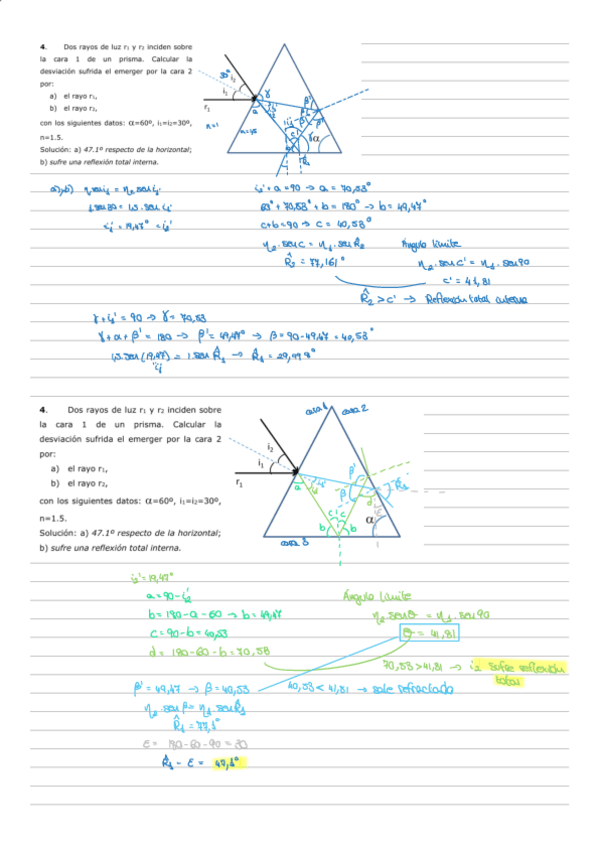 4. Dos rayos de luz r₁ y r₂ inciden sobre
la cara 1 de un prisma. Calcular la
desviación sufrida el emerger por la cara 2
por:
a) el rayo r₁,
b) el rayo r₂,
con los siguientes datos: α=60º, i₁=i₂=30º,
n=1.5.
Solución: a) 47.1º respecto de la horizontal;
b) sufre una reflexión total interna.
30°
i₂
i₁
r₁
n=1
n=1,5
γ
a
β'
α
R₂
a),b)
1.sen30 = 1,5.sen i₁'
i₁' = 19,47° = i₂'
i₂' + a = 90 → a = 70,53°
60° + 70,53° + b = 180° → b = 49,47°
c+b = 90 → c = 40,53°
n₂.sen c = n₁.sen R₂
R̂₂ = 77,161°
Ángulo límite
n₂.sen c' = n₁.sen90
c' = 41,81
R̂₂ > c' → Reflexión total interna
γ + i₁' = 90 → γ = 70,53
γ + α + β' = 180 → β' = 49,47° → β = 90-49,47 = 40,53°
1,5.sen(19,47) = 1.sen R̂₁ → R̂₁ = 29,998°
i₁'
4. Dos rayos de luz r₁ y r₂ inciden sobre
la cara 1 de un prisma. Calcular la
desviación sufrida el emerger por la cara 2
por:
a) el rayo r₁,
b) el rayo r₂,
con los siguientes datos: α=60º, i₁=i₂=30º,
n=1.5.
Solución: a) 47.1º respecto de la horizontal;
b) sufre una reflexión total interna.
cara 1
cara 2
i₂
i₁
r₁
a
β'
β
R̂₁
c
c
d
b
b
α
cara 3
i₂' = 19,47°
a = 90-i₂'
b = 180-a-60 → b = 49,47
c = 90-b = 40,53
d = 180-60-b = 70,53
Ángulo límite
n₂.senθ = n₁.sen90
θ = 41,81
70,53 > 41,81 → i₂ sufre reflexión
total
β' = 49,47 → β = 40,53
40,53 < 41,81 → sale refractado
n₂.sen β = n₁.sen R̂₁
R̂₁ = 77,1°
ε = 180-60-90 = 30
R̂₁ - ε = 47,1°